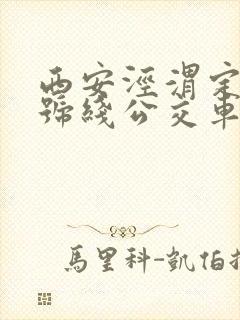 西安涇渭定
號綫公交車
馬里科-凱伯拉